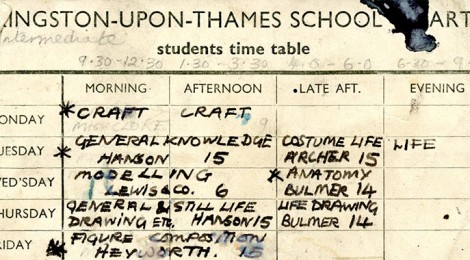 INGSTON-UPON-THAMES SCHOOL ART
Intermediate
students time table
9.30-12.30 1.30-3.30 6-0
MORNING AFTERNOON LATE AFT. EVENING
ONDAY CRAFT CRAFT
UESDAY GENERAL KNOWLEDGE COSTUME LIFE LIFE
HANSON 15 ARCHER 15
WED'SDAY MODELLING ANATOMY
LEWIS & CO. 6 BULMER 14
HURSDAY GENERAL & STILL LIFE LIFE DRAWING
DRAWING ETC. HANSON 15 BULMER 14
RIDAY FIGURE COMPOSITION
HEYWORTH. 15